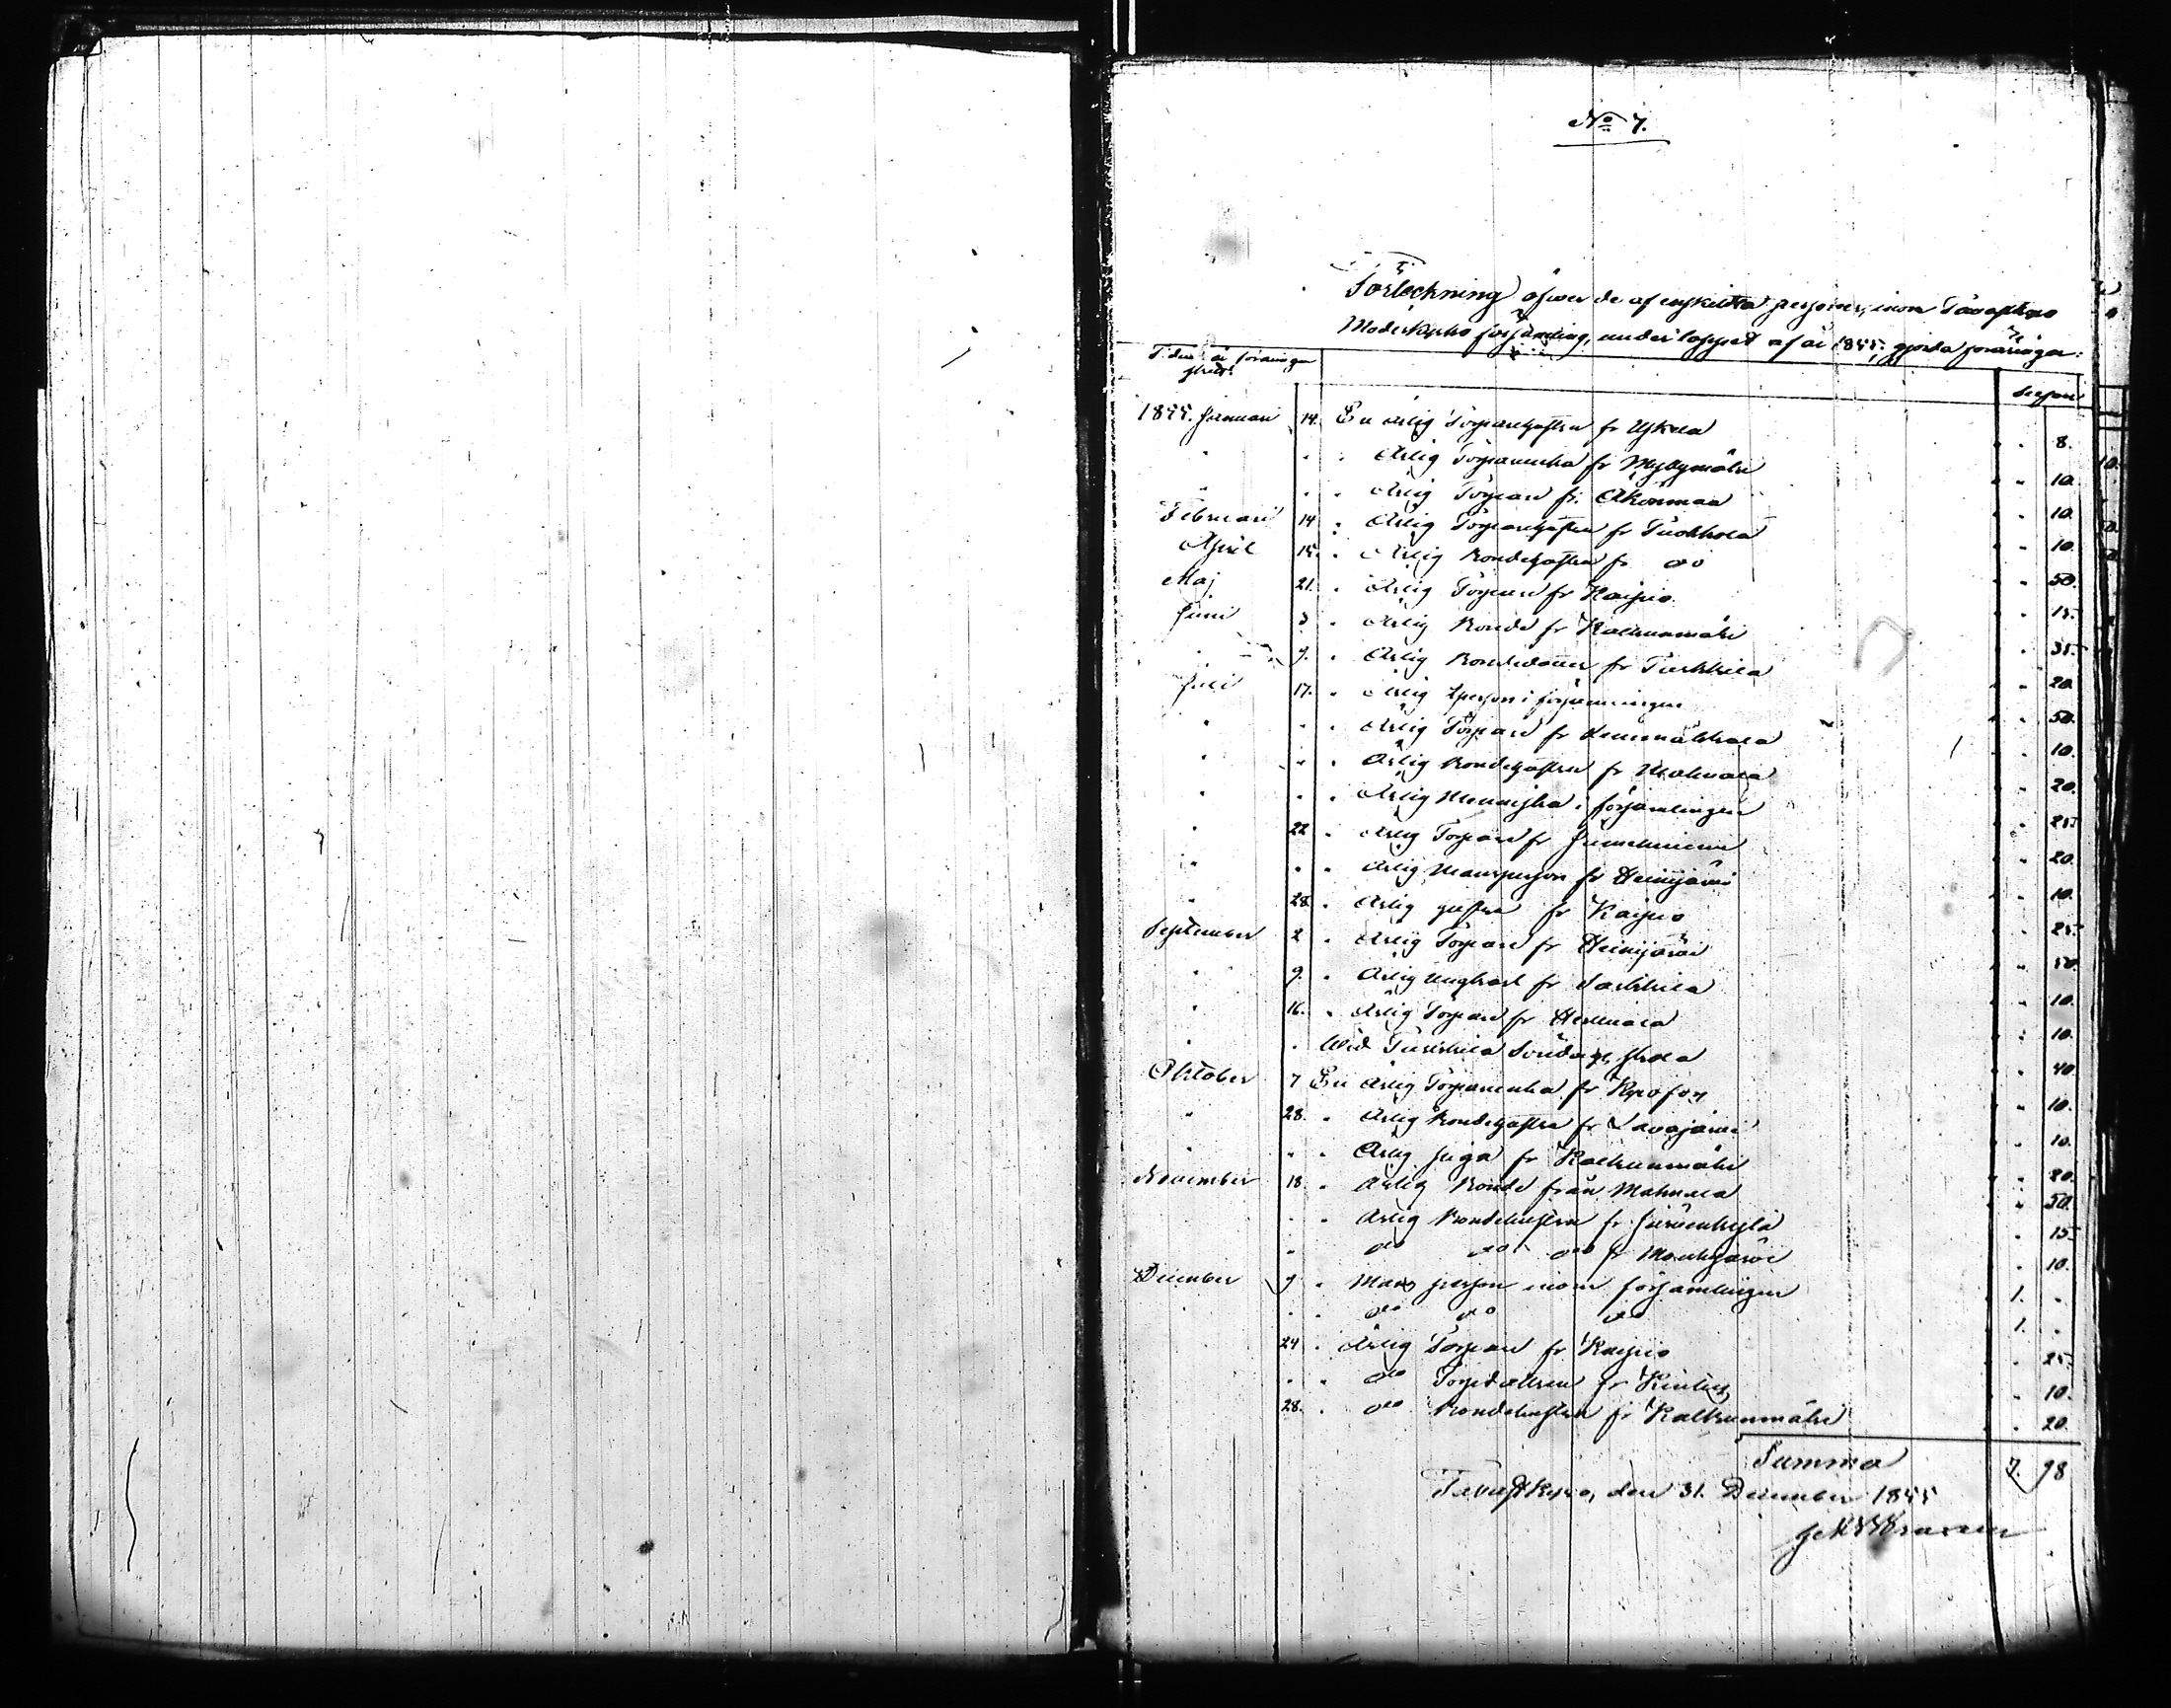 No 7.
Förteckning öfwer de af enskildta personer, inom Tavastkyro
Moderkyrko församling, under loppet af år 1855, gjorda föräringar:
Tiden då föräringen skedt.
1855. Januari 14. En ärlig Torparehustru fr 8.
" " " Ärlig Torparenka fr Myllymäki " " 10.
" " " Ärlig Torpare fr: " " 10.
Februari 14 " Ärlig Torparehustru fr Tuokkola " " 10.
April 15. " Ärlig Bondehustru fr do " " 50.
Maj 21. " Ärlig Torpare fr Kaipio " " 15.
Juni 3 " Ärlig Bonde fr Kalkunmäki " " 35.
" 9. " Ärlig Bondedotter fr Turkkila " " 20.
Juli 17. " Ärlig person i församlingen " " 50.
" " " Ärlig Torpare fr " " 10.
" " " Ärlig Bondehustru fr Mahnala " " 20.
" " " Ärlig Menniska i församlingen " " 25.
" 22 " Ärlig Torpare fr " " 20.
" " " Ärlig Mansperson fr Heinijärvi " " 10.
" 28. " Ärlig hustru fr Kaipio " " 25.
September 2 " Ärlig Torpare fr Heinijärvi " " 50.
" 9. " Ärlig Ungkarl fr Sarkkila " " 10.
" 16. " Ärlig Torpare fr " " 10.
" " Wid Turkkila Söndags skola " " 40.
Oktober 7 En Ärlig Torparenka fr Kyrofors " " 10.
" 28. " Ärlig Bondehustru fr Lavajärvi " " 10.
" " " Ärlig piga fr Kalkunmäki " " 20.
November 18 " Ärlig Bonde från Mahnala " " 50.
" " Ärlig Bondehustru fr Järvenkylä " 15.
" do do do fr " 10.
December 9 " Mans person inom församlingen 1. "
" " " do do do 1. "
24 " Ärlig Torpare fr Kaipio " 25.
" " do fr " " 10.
28. " do Bondehustru fr Kalkunmäki " 20.
Summa 7. 98
Tavastkyro, den 31. December 1855